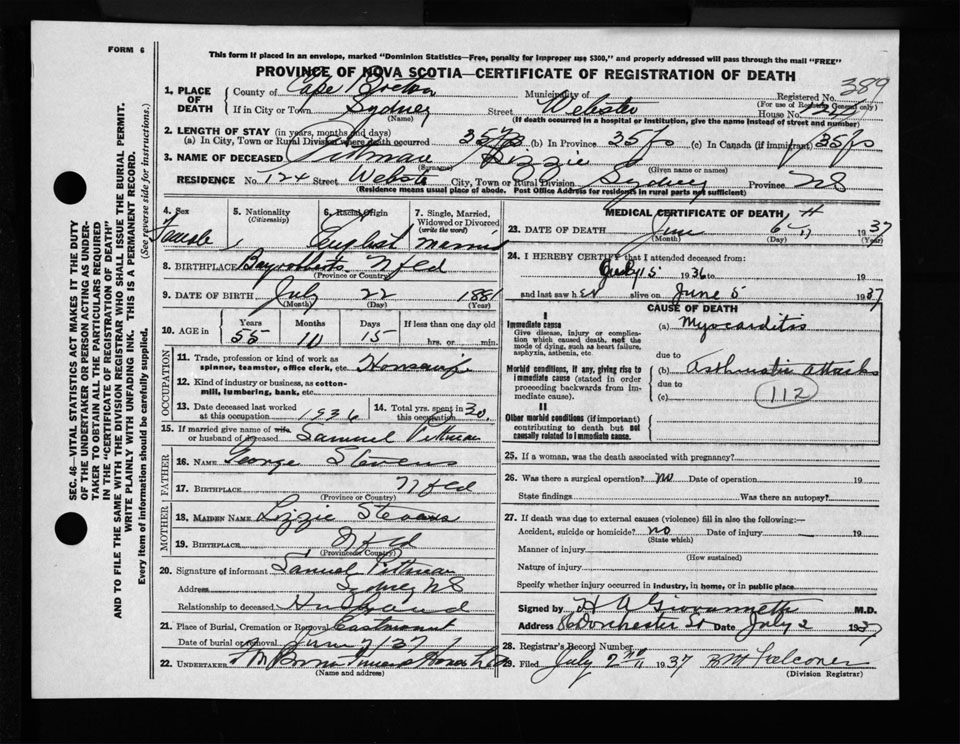 FORM 6
This form if placed in an envelope, marked "Dominion Statistics—Free, penalty for improper use $300," and properly addressed will pass through the mail "FREE"
PROVINCE OF NOVA SCOTIA—CERTIFICATE OF REGISTRATION OF DEATH
389
1. PLACE OF DEATH County of Cape Breton Municipality of Registered No.
(For use of Registrar General only)
If in City or Town Sydney Street Webster House No. 124
(Name) (If death occurred in a hospital or institution, give the name instead of street and number)
2. LENGTH OF STAY (in years, months and days)
(a) In City, Town or Rural Division where death occurred 35 yrs (b) In Province 35 yrs (c) In Canada (if immigrant) 35 yrs
3. NAME OF DECEASED Pittman Lizzie
(Surname) (Given name or names)
RESIDENCE No. 124 Street Webster City, Town or Rural Division Sydney Province NS
(Residence means usual place of abode. Post Office Address for residents in rural parts not sufficient)
4. Sex 5. Nationality (Citizenship) 6. Racial Origin 7. Single, Married, Widowed or Divorced (write the word)
Female English Married
8. BIRTHPLACE Bay roberts Nfld
(Province or Country)
9. DATE OF BIRTH July 22 1881
(Month) (Day) (Year)
10. AGE in Years Months Days If less than one day old
55 10 15 hrs. or min.
OCCUPATION
11. Trade, profession or kind of work as spinner, teamster, office clerk, etc. Housewife
12. Kind of industry or business, as cotton-mill, lumbering, bank, etc.
13. Date deceased last worked at this occupation 1936 14. Total yrs. spent in this occupation 30
15. If married give name of wife or husband of deceased Samuel Pittman
FATHER
16. NAME George Stevens
17. BIRTHPLACE Nfld
(Province or Country)
MOTHER
18. MAIDEN NAME Lizzie Stevens
19. BIRTHPLACE Nfld
(Province or Country)
20. Signature of informant Samuel Pittman
Address Sydney NS
Relationship to deceased Husband
21. Place of Burial, Cremation or Removal Eastmount
Date of burial or removal June 7/37
22. UNDERTAKER
(Name and address)
MEDICAL CERTIFICATE OF DEATH
23. DATE OF DEATH June 6th 1937
(Month) (Day) (Year)
24. I HEREBY CERTIFY that I attended deceased from:
July 5 1936 to 19
and last saw her alive on June 5 1937
CAUSE OF DEATH
I
Immediate cause
Give disease, injury or complication which caused death, not the mode of dying, such as heart failure, asphyxia, asthenia, etc.
(a) Myocarditis
due to
Morbid conditions, if any, giving rise to immediate cause (stated in order proceeding backwards from immediate cause).
(b) Asthmatic attacks
due to
(c) 112
II
Other morbid conditions (if important) contributing to death but not causally related to immediate cause.
25. If a woman, was the death associated with pregnancy?
26. Was there a surgical operation? no Date of operation 19
State findings Was there an autopsy?
27. If death was due to external causes (violence) fill in also the following:—
Accident, suicide or homicide? no Date of injury — 19
(State which)
Manner of injury
(How sustained)
Nature of injury
Specify whether injury occurred in industry, in home, or in public place
Signed by H A Giovannetti M.D.
Address Dorchester St Date July 2 1937
28. Registrar's Record Number
29. Filed July 2nd 1937 Falconer
(Division Registrar)
SEC. 46—VITAL STATISTICS ACT MAKES IT THE DUTY
OF THE UNDERTAKER OR PERSON ACTING AS UNDER-
TAKER TO OBTAIN ALL THE PARTICULARS REQUIRED
IN THE "CERTIFICATE OF REGISTRATION OF DEATH"
AND TO FILE THE SAME WITH THE DIVISION REGISTRAR WHO SHALL ISSUE THE BURIAL PERMIT.
WRITE PLAINLY WITH UNFADING INK. THIS IS A PERMANENT RECORD.
Every item of information should be carefully supplied. (See reverse side for instructions.)